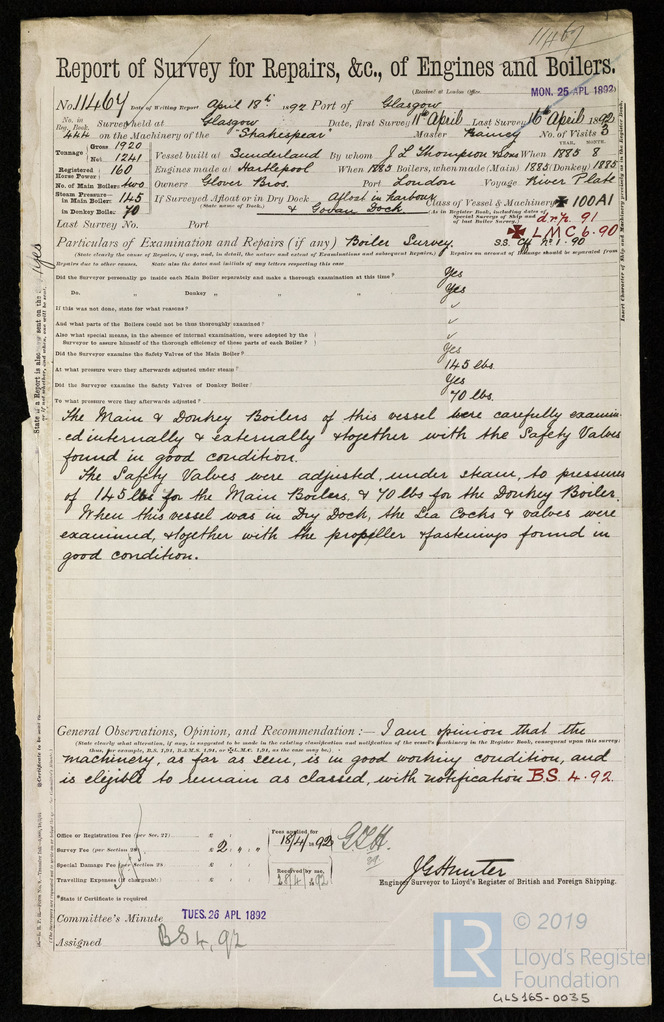 11467
Report of Survey for Repairs, &c., of Engines and Boilers.
(Received at London Office MON. 25 APL 1892)
No. 11467 Date of Writing Report April 18th 1892 Port of Glasgow
No. in Reg. Book. 444 Survey held at Glasgow Date, first Survey 11th April Last Survey 16th April 1892
on the Machinery of the "Shakespear" Master No. of Visits 3
Tonnage Gross 1920 Net 1241 Vessel built at Sunderland By whom J L Thompson & Sons When 1885 8
Registered Horse Power 160 Engines made at Hartlepool When 1885 Boilers, when made (Main) 1885 (Donkey) 1885
No. of Main Boilers two Owners Glover Bros. Port London Voyage River Plate
Steam Pressure in Main Boilers 145 If Surveyed Afloat or in Dry Dock Afloat in harbour Class of Vessel & Machinery ✠ 100A1
in Donkey Boiler 70 (State name of Dock.) & Govan Dock (As in Register Book, including dates of Special Surveys of Ship and of last Boiler Survey.) 91
Last Survey No. Port ✠ LMC 6.90
Particulars of Examination and Repairs (if any) Boiler Survey. S.S. No 1. 90
(State clearly the cause of Repairs, if any, and, in detail, the nature and extent of Examinations and subsequent Repairs.) Repairs on account of Damage should be separated from
Repairs due to other causes. State also the dates and initials of any letters respecting this case
Did the Surveyor personally go inside each Main Boiler separately and make a thorough examination at this time? Yes
Do. " Donkey " " " " Yes
If this was not done, state for what reasons? ✓
And what parts of the Boilers could not be thus thoroughly examined? ✓
Also what special means, in the absence of internal examination, were adopted by the
Surveyor to assure himself of the thorough efficiency of these parts of each Boiler? ✓
Did the Surveyor examine the Safety Valves of the Main Boiler? Yes
At what pressure were they afterwards adjusted under steam? 145 lbs.
Did the Surveyor examine the Safety Valves of Donkey Boiler? Yes
To what pressure were they afterwards adjusted? 70 lbs.
The Main & Donkey Boilers of this vessel were carefully examin-
ed internally & externally & together with the Safety Valves
found in good condition.
The Safety Valves were adjusted, under steam, to pressures
of 145 lbs for the Main Boilers, & 70 lbs for the Donkey Boiler.
When this vessel was in Dry Dock, the Sea Cocks & valves were
examined, & together with the propeller & fastenings found in
good condition.
General Observations, Opinion, and Recommendation:— I am opinion that the
(State clearly what alteration, if any, is suggested to be made in the existing classification and notification of the vessel's machinery in the Register Book, consequent upon this survey;
thus, for example, B.S. 1,91, B.&M.S. 1,91, or ✠L.M.C. 1,91, as the case may be.)
machinery, as far as seen, is in good working condition, and
is eligible to remain as classed, with notification B.S. 4.92.
Office or Registration Fee (per Sec. 27) £
Survey Fee (per Section 28) £ 2
Special Damage Fee (per Section 28) £
Travelling Expenses (if chargeable) £
Fees applied for 18/4/1892
Received by me, 28/4/1892
*State if Certificate is required
J G Hunter
Engineer Surveyor to Lloyd's Register of British and Foreign Shipping.
Committee's Minute TUES. 26 APL 1892
Assigned BS 4, 92
LR
© 2019
Lloyd's Register
Foundation
GLS165-0035